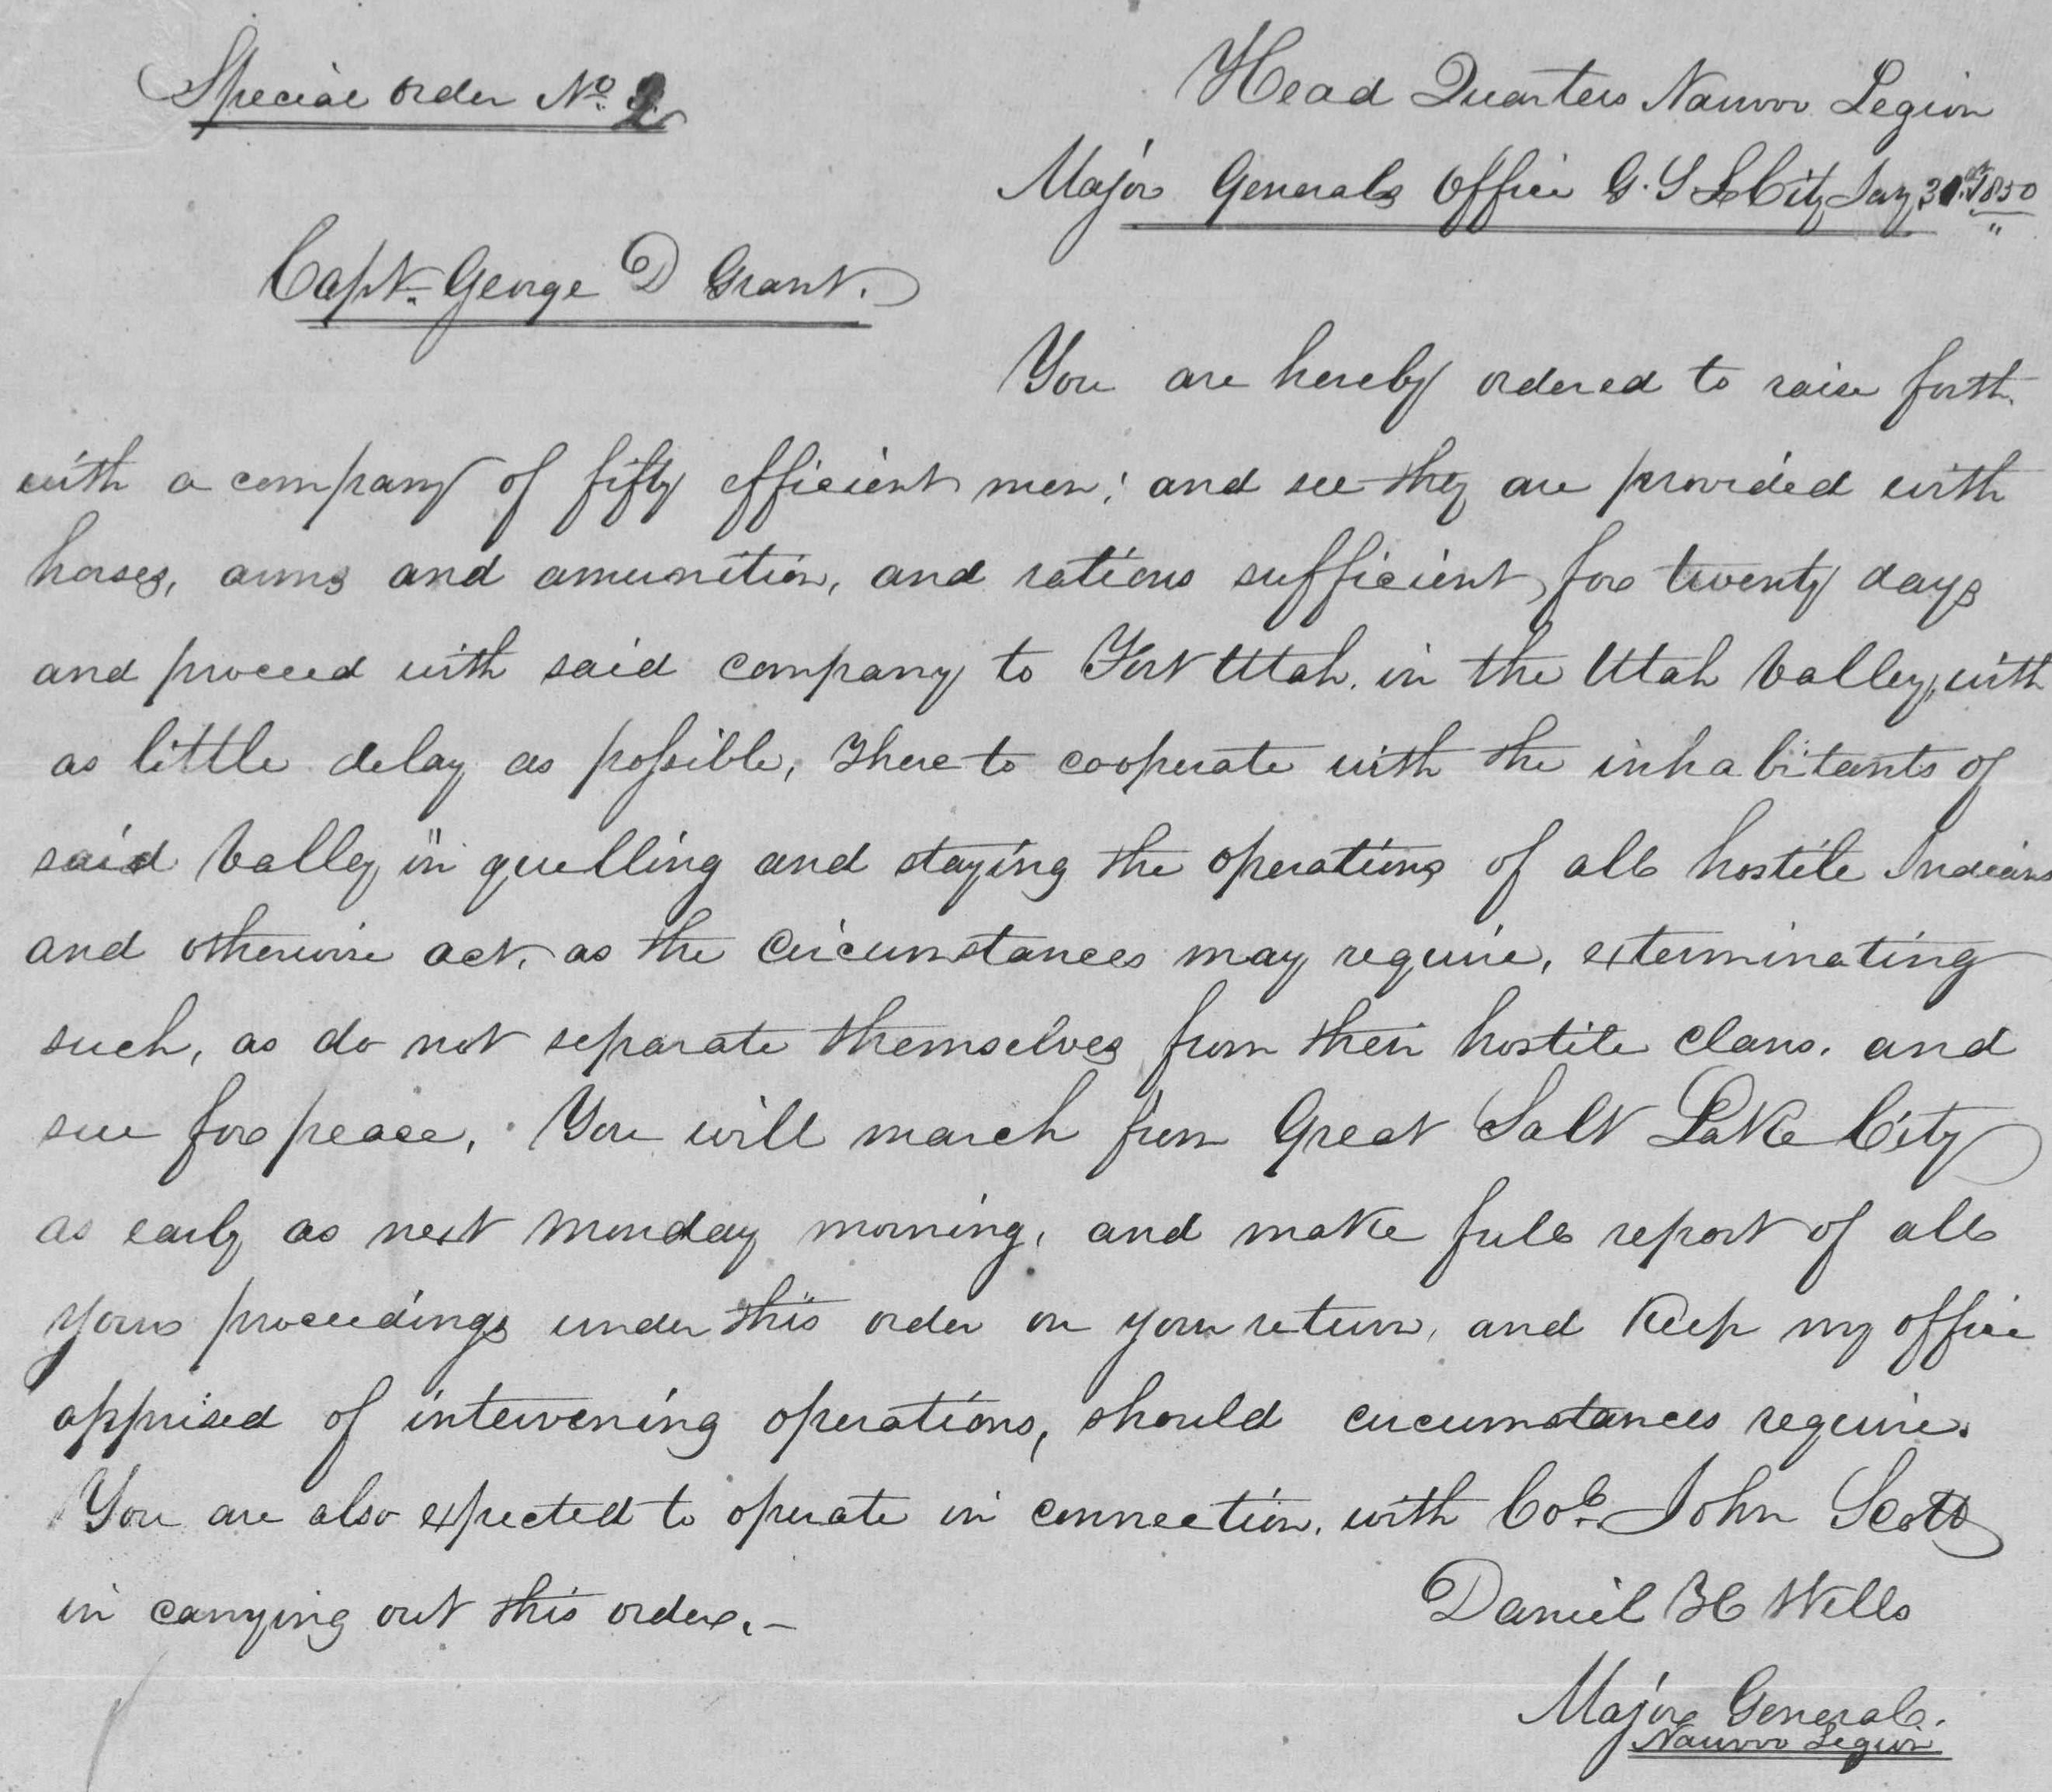 Special order No. 2
Head Quarters Nauvoo Legion
Major Generals Office G. S L City Jay 31st 1850
Capt. George D Grant.
You are hereby ordered to raise forth
with a company of fifty efficient men; and see they are provided with
horses, arms and amunition, and rations sufficient for twenty days
and proceed with said company to Fort Utah. in the Utah Valley, with
as little delay as possible, There to cooperate with the inhabitants of
said Valley in quelling and staying the operations of all hostile Indians
and otherwise act, as the circumstances may require, exterminating
such, as do not separate themselves from their hostile clans. and
sue for peace. You will march from Great Salt Lake City
as early as next Monday morning, and make full report of all
your proceedings under this order on your return, and Keep my office
apprised of intervening operations, should circumstances require.
You are also expected to operate in connection. with Col. John Scott
in carrying out this order.—
Daniel H Wells
Major General.
Nauvoo Legion